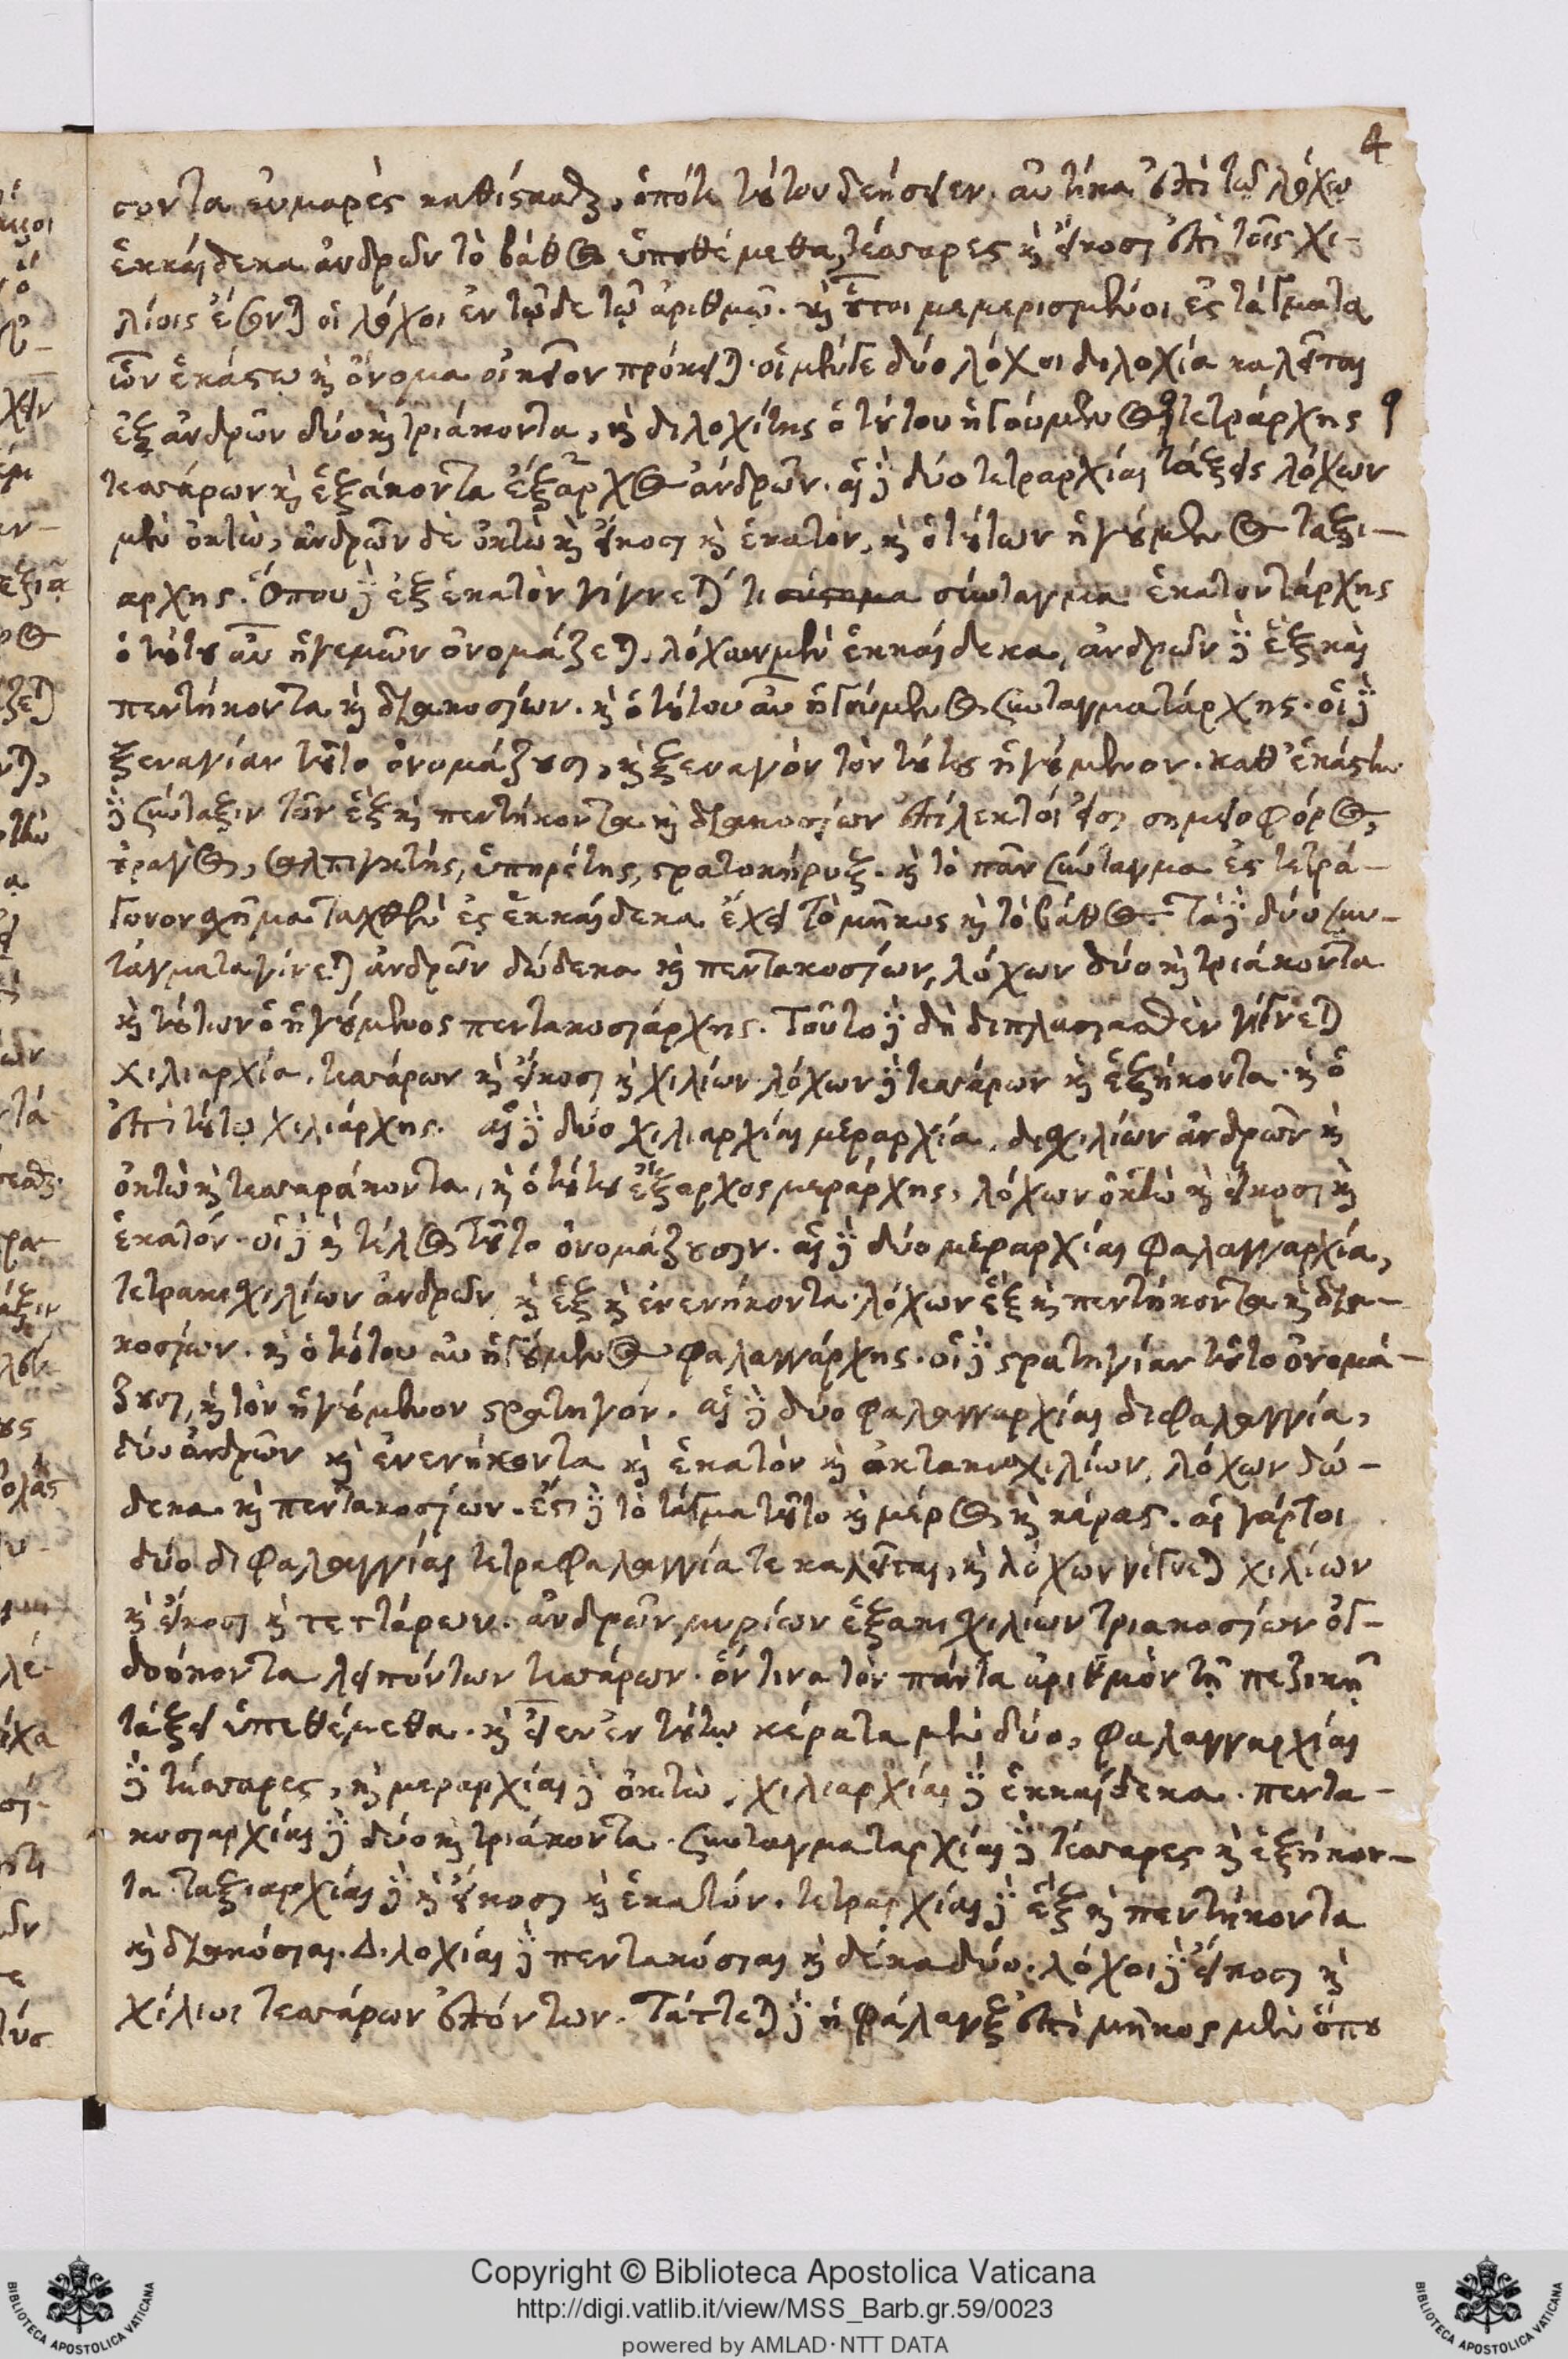 4
σοντα εὐμαρὲς καθίσταται, ὁπότε τούτου δεήσειεν. αὐτίκα ἐπὶ τῷ λόχῳ
ἑκκαίδεκα ἀνδρῶν τὸ βάθος ὑποθέμεθα, τέσσαρες καὶ εἴκοσι ἐπὶ τοῖς χι-
λίοις ἔσονται οἱ λόχοι ἐν τῷδε τῷ ἀριθμῷ. καὶ οὗτοι μεμερισμένοι ἐς τάγματα
ὧν ἑκάστῳ καὶ ὄνομα οἰκεῖον πρόκειται. οἱ μὲν δὲ δύο λόχοι διλοχία καλεῖται
ἐξ ἀνδρῶν δύο καὶ τριάκοντα, καὶ διλοχίτης ὁ τούτου ἡγούμενος τετράρχης
τεσσάρων καὶ ἑξάκοντα ἔξαρχος ἀνδρῶν. αἱ δὲ δύο τετραρχίαι τάξεις λόχων
μὲν ὀκτὼ, ἀνδρῶν δὲ ὀκτὼ καὶ εἴκοσι καὶ ἑκατόν, καὶ ὁ τούτων ἡγούμενος ταξι-
αρχης. Ὅπου δὲ ἐξ ἑκατὸν γίγνεται τι σύστημα σύνταγμα ἑκατοντάρχης
ὁ τούτου αὖ ἡγεμὼν ὀνομάζεται. λόχων μὲν ἑκκαίδεκα, ἀνδρῶν δὲ ἓξ καὶ
πεντήκοντα καὶ διακοσίων. καὶ ὁ τούτου αὖ ἡγούμενος συνταγματάρχης. οἱ δὲ
ξεναγίαν τοῦτο ὀνομάζουσι, καὶ ξεναγὸν τὸν τούτου ἡγούμενον. καθ' ἑκάστην
δὲ σύνταξιν τῶν ἓξ καὶ πεντήκοντα καὶ διακοσίων ἐπίλεκτοί εἰσι σημειοφόρος,
οὐραγὸς, σαλπιγκτής, ὑπηρέτης, στρατοκήρυξ. καὶ τὸ πᾶν σύνταγμα ἐς τετρά-
γωνον σχῆμα ταχθὲν ἐς ἑκκαίδεκα ἔχει τὸ μῆκος καὶ τὸ βάθος. Τὰ δὲ δύο συν-
τάγματα γίνεται ἀνδρῶν δώδεκα καὶ πεντακοσίων, λόχων δύο καὶ τριάκοντα
καὶ τούτων ὁ ἡγούμενος πεντακοσιάρχης. Τοῦτο δὲ δὴ διπλασιασθὲν γίγνεται
χιλιαρχία. τεσσάρων καὶ εἴκοσι καὶ χιλίων. λόχων δὲ τεσσάρων καὶ ἑξήκοντα. καὶ ὁ
ἐπὶ τούτῳ χιλιάρχης. αἱ δὲ δύο χιλιαρχίαι μεραρχία, δισχιλίων ἀνδρῶν καὶ
ὀκτὼ καὶ τεσσαράκοντα, καὶ ὁ τούτου ἔξαρχος μεράρχης, λόχων ὀκτὼ καὶ εἴκοσι καὶ
ἑκατόν. οἱ δὲ καὶ τέλος τοῦτο ὀνομάζουσιν. αἱ δὲ δύο μεραρχίαι φαλαγγαρχία,
τετρακισχιλίων ἀνδρῶν, καὶ ἓξ καὶ ἐνενήκοντα. λόχων ἓξ καὶ πεντήκοντα καὶ δια-
κοσίων. καὶ ὁ τούτου αὖ ἡγούμενος φαλαγγάρχης. οἱ δὲ στρατηγίαν τοῦτο ὀνομά-
ζουσι, καὶ τὸν ἡγούμενον στρατηγόν. αἱ δὲ δύο φαλαγγαρχίαι διφαλαγγία,
δύο ἀνδρῶν καὶ ἐνενήκοντα καὶ ἑκατὸν καὶ ὀκτακισχιλίων, λόχων δώ-
δεκα καὶ πεντακοσίων. ἔστι δὲ τὸ τάγμα τοῦτο καὶ μέρος καὶ κέρας. αἱ γάρ τοι
δύο διφαλαγγίαι τετραφαλαγγία τε καλεῖται, καὶ λόχων γίγνεται χιλίων
καὶ εἴκοσι καὶ τεττάρων. ἀνδρῶν μυρίων ἑξακισχιλίων τριακοσίων ὀγ-
δοήκοντα λειπόντων τεσσάρων. ὅν τινα τὸν πάντα ἀριθμὸν τῇ πεζικῇ
τάξει ὑπεθέμεθα. καὶ εἶεν ἐν τούτῳ κέρατα μὲν δύο, φαλαγγαρχίαι
δὲ τέσσαρες, καὶ μεραρχίαι δὲ ὀκτὼ. χιλιαρχίαι δὲ ἑκκαίδεκα. πεντα-
κοσιαρχίαι δὲ δύο καὶ τριάκοντα. συνταγματαρχίαι δὲ τέσσαρες καὶ ἑξήκον-
τα ταξιαρχίαι δὲ ἡ εἴκοσι καὶ ἑκατόν. τετραρχίαι δὲ ἓξ καὶ πεντήκοντα
καὶ διακόσιαι. Διλοχίαι δὲ πεντακόσιαι καὶ δέκα δύο. λόχοι δὲ εἴκοσι καὶ
χίλιοι τεσσάρων ἐπόντων. Τάττεται δὲ ἡ φάλαγξ ἐπὶ μῆκος μὲν ὅπου
Copyright © Biblioteca Apostolica Vaticana
http://digi.vatlib.it/view/MSS_Barb.gr.59/0023
powered by AMLAD · NTT DATA
BIBLIOTECA APOSTOLICA VATICANA
BIBLIOTECA APOSTOLICA VATICANA